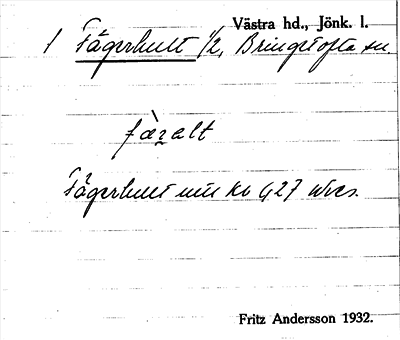 Västra hd., Jönk. l.
1 Fägerhult 1/2, Bringetofta sn.
fàgalt
Fägerhult
Fritz Andersson 1932.